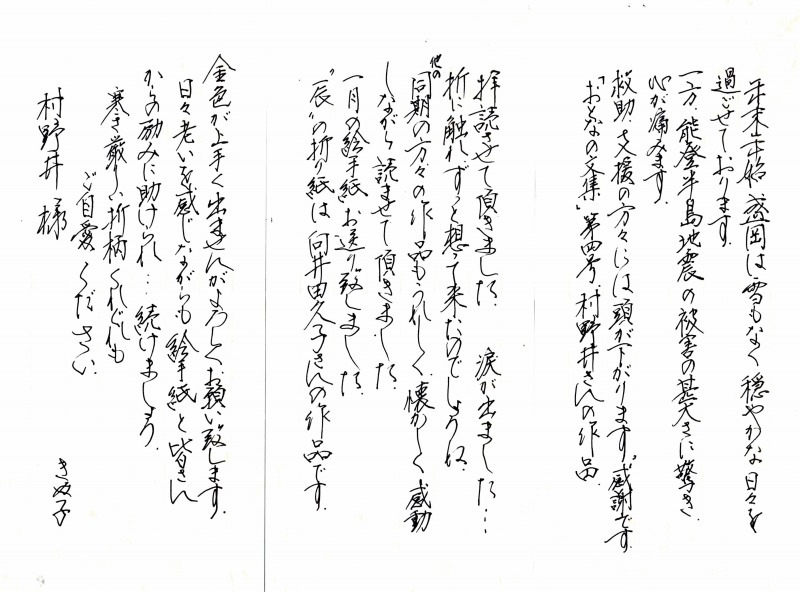 年末年始、盛岡は雪もなく穏やかな日々を
過ごせております。
一方、能登半島地震の被害の甚大さに驚き、
心が痛みます。
救助、支援の方々には頭が下がります。感謝です。
「おとなの文集」第四号、村野井さんの作品、
拝読させて頂きました。 涙が出ました…
折に触れずっと想って来たのでしょうね。
他の
同期の方々の作品もうれしく、懐かしく、感動
しながら読ませて頂きました。
一月の絵手紙、お送り致しました。
"辰"の折り紙は向井田久子さんの作品です。
金色が上手く出ませんがよろしくお願い致します。
日々老いを感じながらも絵手紙と皆さん
からの励みに助けられ… 続けましょう。
寒さ厳しい折柄くれぐれも
ご自愛ください。
きぬ子
村野井 様